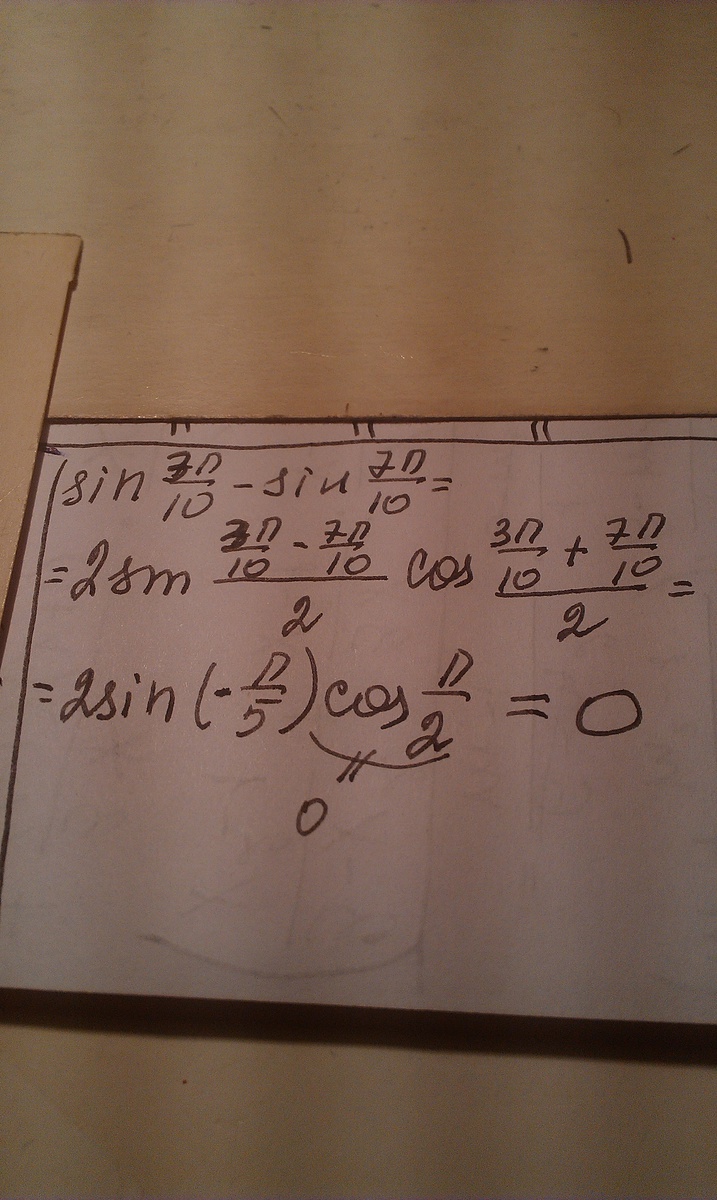 sin 3π/10 - sin 7π/10 =
= 2 sin (3π/10 - 7π/10)/2 cos (3π/10 + 7π/10)/2 =
= 2 sin (-π/5) cos π/2 = 0
0